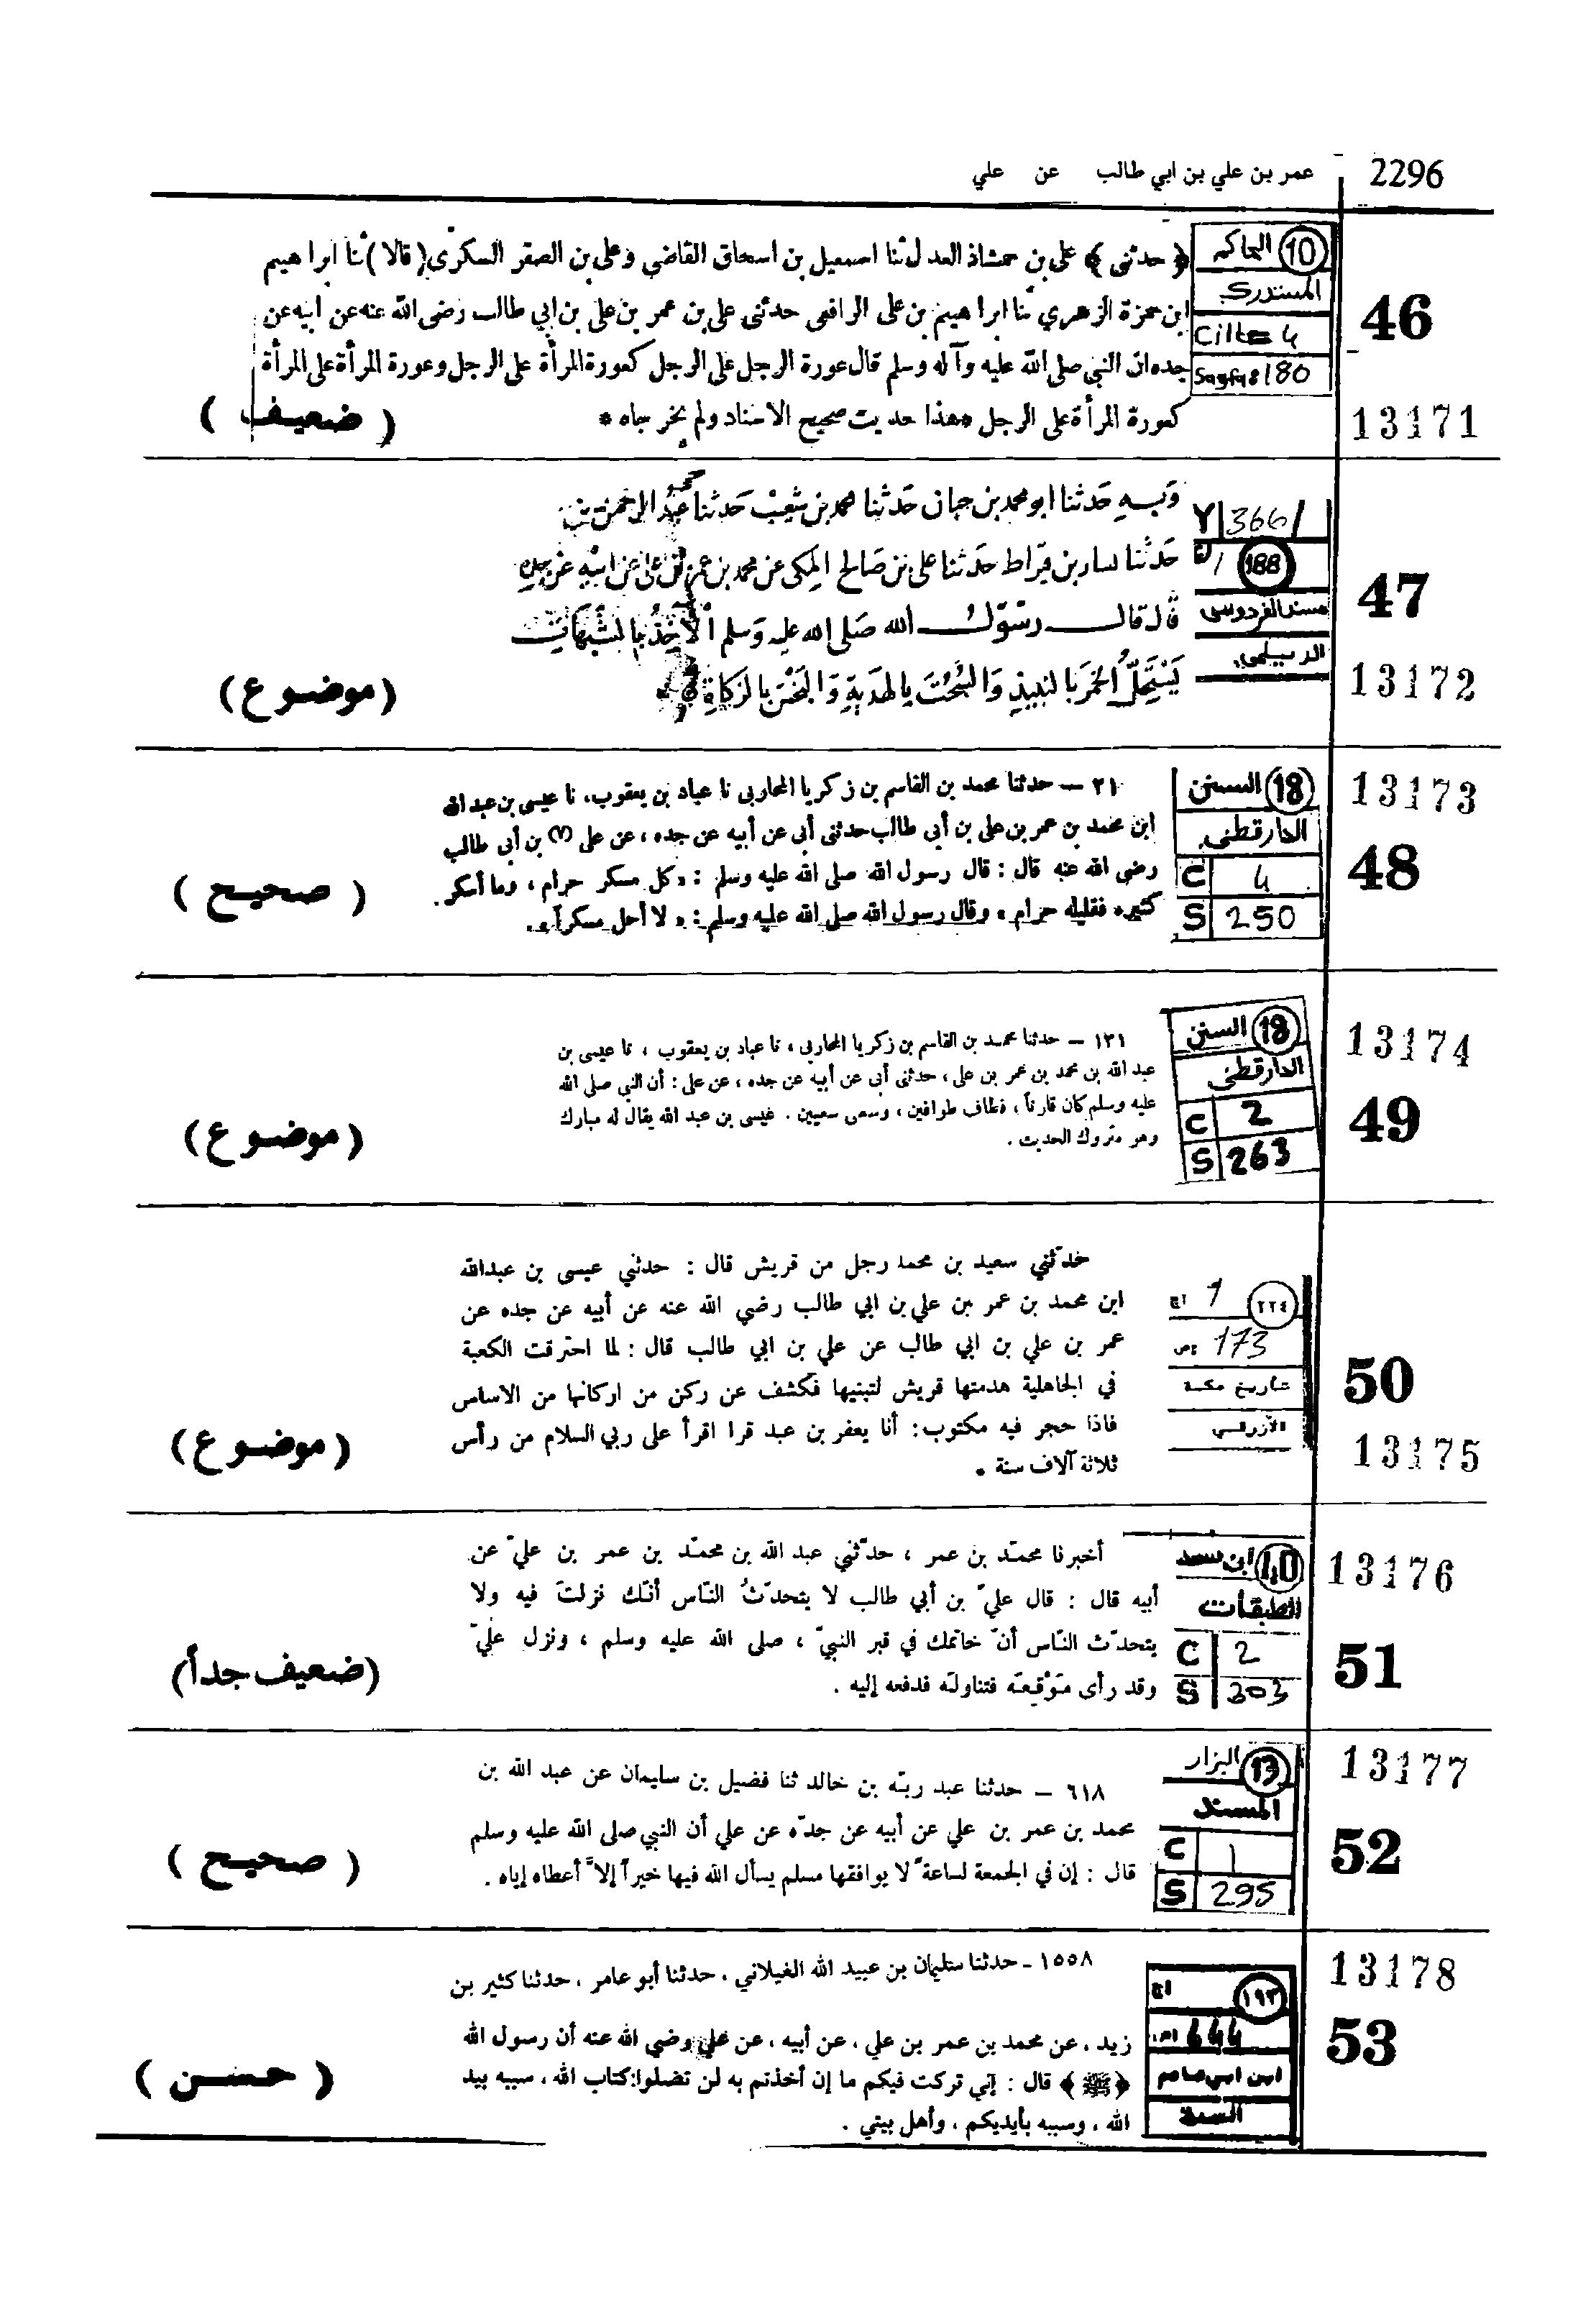 2296
عمر بن علي بن ابي طالب عن علي
10 الحاكم
المستدرك
Cilt= 4
Sayfa: 180
46
13171
﴿ حدثني ﴾ علي بن حمشاذ العدل ثنا اسمعيل بن اسحاق القاضي وعلي بن الصقر السكري (قالا) ثنا ابراهيم
ابن حمزة الزهري ثنا ابراهيم بن على الرافعى حدثنى على بن عمر بن على بن ابي طالب رضى الله عنه عن ابيه عن
جده ان النبي صلى الله عليه وآله وسلم قال عورة الرجل على الرجل كعورة المرأة على الرجل وعورة المرأة على المرأة
كعورة المرأة على الرجل * هذا حديث صحيح الاسناد ولم يخرجاه *
( ضعيف )
366
188
مسند الفردوس
الديلمي
47
13172
وَبه حَدثنا ابو محمد بن حيان حَدثنا محمد بن شعيب حَدثنا عبد الرحمن
حَدثنا بن قيراط حَدثنا على بن صَالح المكى عن محمد بن عمر بن على عن ابيه عن جده
قال قال رسول الله صَلى الله عليه وَسلم
يَسْتَحِلّ الخمر بالنبيذ وَالسُّحْتَ بالهَدية وَالبَخْسَ بالزكاة
(موضوع)
18 السنن
الدارقطني
C 4
S 250
13173
48
٢١ – حدثنا محمد بن القاسم بن زكريا المحاربى نا عباد بن يعقوب، نا عيسى بن عبد الله
ابن محمد بن عمر بن على بن أبي طالب حدثنى أبى عن أبيه عن جده ، عن على (٧) بن أبى طالب
رضى الله عنه قال : قال رسول الله صلى الله عليه وسلم : «كل مسكر حرام ، وما أسكر
كثيره فقليله حرام » وقال رسول الله صلى الله عليه وسلم : « لا أحل مسكراً ».
( صحيح )
18 السنن
الدارقطني
C 2
S 263
13174
49
١٣١ – حدثنا محمد بن القاسم بن زكريا المحاربى ، نا عباد بن يعقوب ، نا عيسى بن
عبد الله بن محمد بن عمر بن على ، حدثنى أبى عن أبيه عن جده ، عن على : أن النبي صلى الله
عليه وسلم كان قارناً ، فطاف طوافين ، وسعى سعيين . عيسى بن عبد الله يقال له مبارك
وهو متروك الحديث .
(موضوع)
٢٢٤ ج: 1
ص: 173
تاريخ مكة
الأزرقي
50
13175
حدثني سعيد بن محمد رجل من قريش قال : حدثني عيسى بن عبدالله
ابن محمد بن عمر بن علي بن ابي طالب رضي الله عنه عن أبيه عن جده عن
عمر بن علي بن ابي طالب عن علي بن ابي طالب قال : لما احترقت الكعبة
في الجاهلية هدمتها قريش لتبنيها فكشف عن ركن من اركانها من الاساس
فاذا حجر فيه مكتوب: أنا يعفر بن عبد قرا اقرأ على ربي السلام من رأس
ثلاثة آلاف سنة .
(موضوع)
40 ابن سعد
الطبقات
C 2
S 303
13176
51
أخبرنا محمّد بن عمر ، حدّثني عبد الله بن محمّد بن عمر بن عليّ عن
أبيه قال : قال عليّ بن أبي طالب لا يتحدّثُ النّاس أنّك نزلتَ فيه ولا
يتحدّث النّاس أنّ خاتمك في قبر النبيّ ، صلى الله عليه وسلم ، ونزل عليّ
وقد رأى مَوْقِعَه فتناولَه فدفعه إليه .
(ضعيف جداً)
13 البزار
المسند
C 1
S 295
13177
52
٦١٨ – حدثنا عبد ربّه بن خالد ثنا فضيل بن سليمان عن عبد الله بن
محمد بن عمر بن علي عن أبيه عن جدّه عن علي أن النبي صلى الله عليه وسلم
قال : إن في الجمعة لساعة لا يوافقها مسلم يسأل الله فيها خيراً إلاّ أعطاه إياه .
( صحيح )
١٩٢ ج:
ص: 644
ابن ابي عاصم
السنة
13178
53
١٥٥٨ - حدثنا سليمان بن عبيد الله الغيلاني ، حدثنا أبو عامر ، حدثنا كثير بن
زيد ، عن محمد بن عمر بن علي ، عن أبيه ، عن علي رضي الله عنه أن رسول الله
﴿ﷺ﴾ قال : إني تركت فيكم ما إن أخذتم به لن تضلوا: كتاب الله ، سببه بيد
الله ، وسببه بأيديكم ، وأهل بيتي .
( حسن )